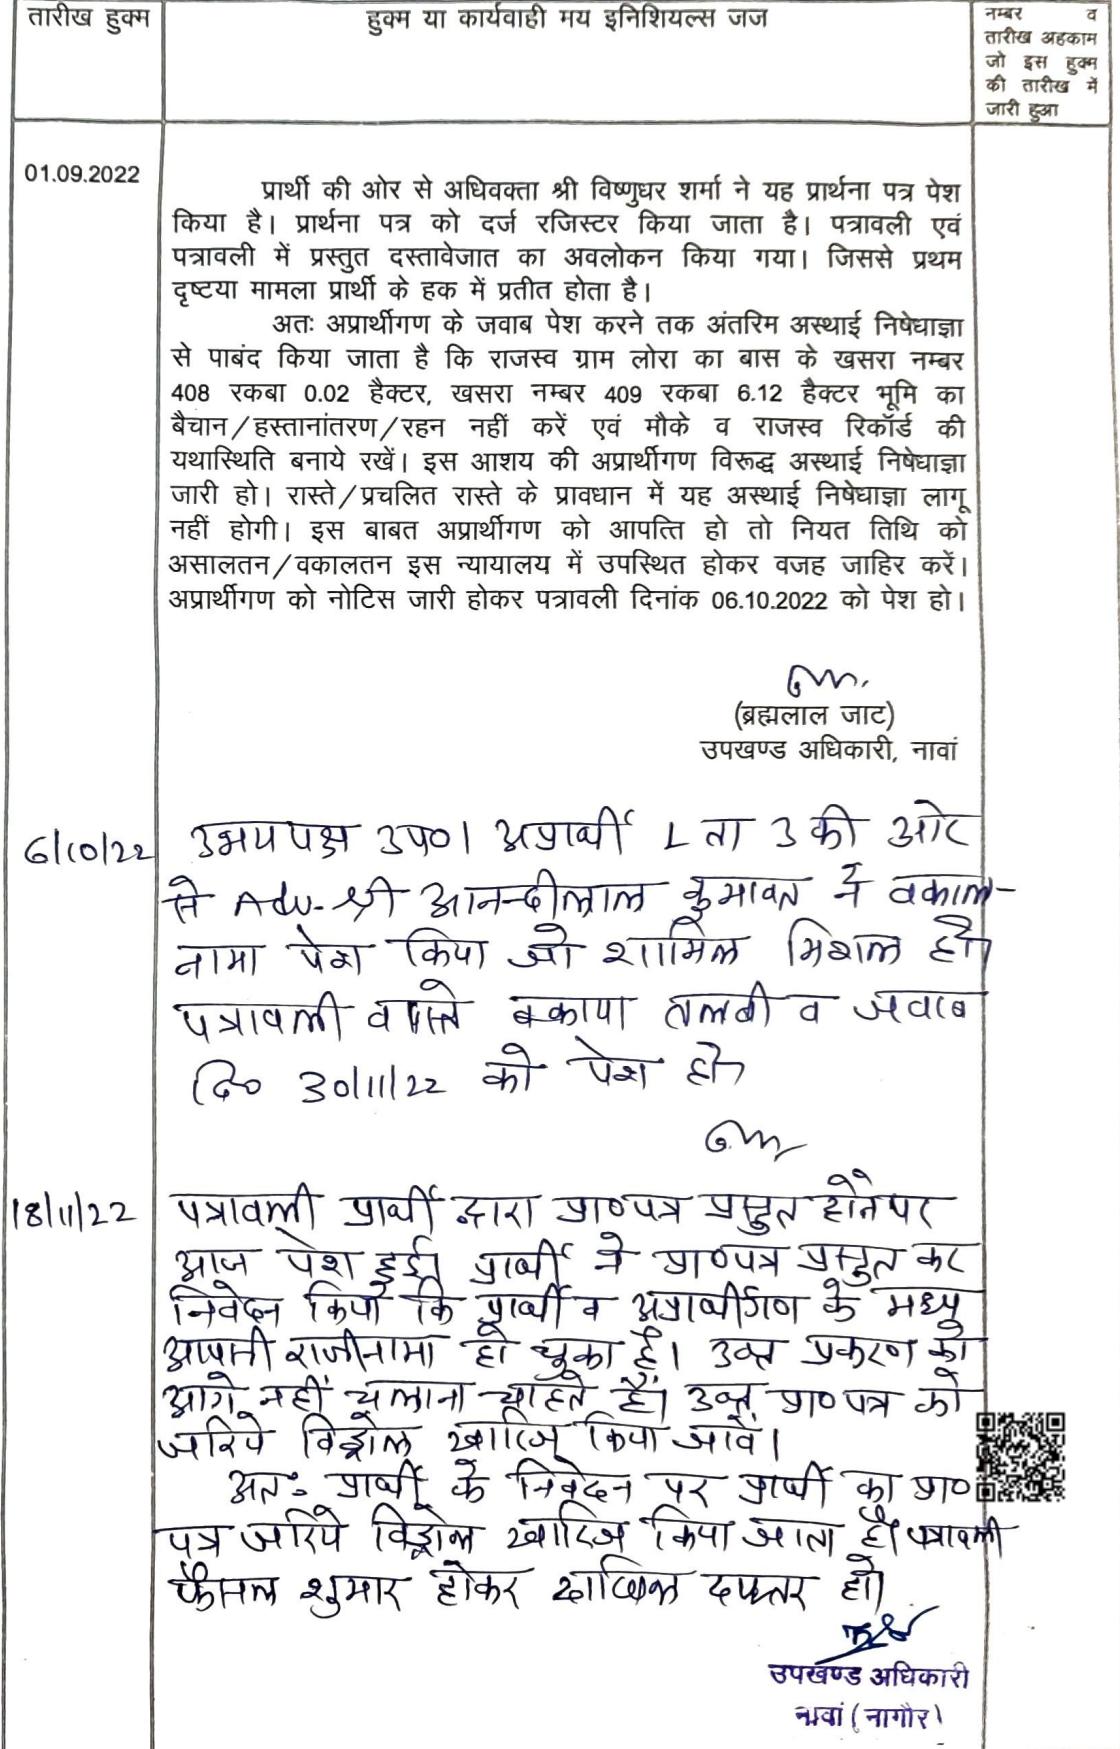 तारीख हुक्म
हुक्म या कार्यवाही मय इनिशियल्स जज
नम्बर व
तारीख अहकाम
जो इस हुक्म
की तारीख में
जारी हुआ
01.09.2022
प्रार्थी की ओर से अधिवक्ता श्री विष्णुधर शर्मा ने यह प्रार्थना पत्र पेश
किया है। प्रार्थना पत्र को दर्ज रजिस्टर किया जाता है। पत्रावली एवं
पत्रावली में प्रस्तुत दस्तावेजात का अवलोकन किया गया। जिससे प्रथम
दृष्टया मामला प्रार्थी के हक में प्रतीत होता है।
अतः अप्रार्थीगण के जवाब पेश करने तक अंतरिम अस्थाई निषेधाज्ञा
से पाबंद किया जाता है कि राजस्व ग्राम लोरा का बास के खसरा नम्बर
408 रकबा 0.02 हैक्टर, खसरा नम्बर 409 रकबा 6.12 हैक्टर भूमि का
बैचान/हस्तानांतरण/रहन नहीं करें एवं मौके व राजस्व रिकॉर्ड की
यथास्थिति बनाये रखें। इस आशय की अप्रार्थीगण विरूद्ध अस्थाई निषेधाज्ञा
जारी हो। रास्ते/प्रचलित रास्ते के प्रावधान में यह अस्थाई निषेधाज्ञा लागू
नहीं होगी। इस बाबत अप्रार्थीगण को आपत्ति हो तो नियत तिथि को
असालतन/वकालतन इस न्यायालय में उपस्थित होकर वजह जाहिर करें।
अप्रार्थीगण को नोटिस जारी होकर पत्रावली दिनांक 06.10.2022 को पेश हो।
(ब्रह्मलाल जाट)
उपखण्ड अधिकारी, नावां
6/10/22 उभयपक्ष उप०। अप्रार्थी 1 ता 3 की ओर
से Adv. श्री आनन्दीलाल कुमावत ने वकाल-
नामा पेश किया जो शामिल मिशल हो।
पत्रावली वास्ते बकाया तलबी व जवाब
दि० 30/11/22 को पेश हो।
18/11/22 पत्रावली प्रार्थी द्वारा प्रा०पत्र प्रस्तुत होने पर
आज पेश हुई। प्रार्थी ने प्रा०पत्र प्रस्तुत कर
निवेदन किया कि प्रार्थी व अप्रार्थीगण के मध्य
आपसी राजीनामा हो चुका है। उक्त प्रकरण को
आगे नहीं चलाना चाहते हैं। उक्त प्रा० पत्र को
जरिये विड्रोल खारिज किया जावें।
अतः प्रार्थी के निवेदन पर प्रार्थी का प्रा०
पत्र जरिये विड्रोल खारिज किया जाता है। पत्रावली
फैसल शुमार होकर दाखिल दफ्तर हो।
उपखण्ड अधिकारी
नावां (नागौर)